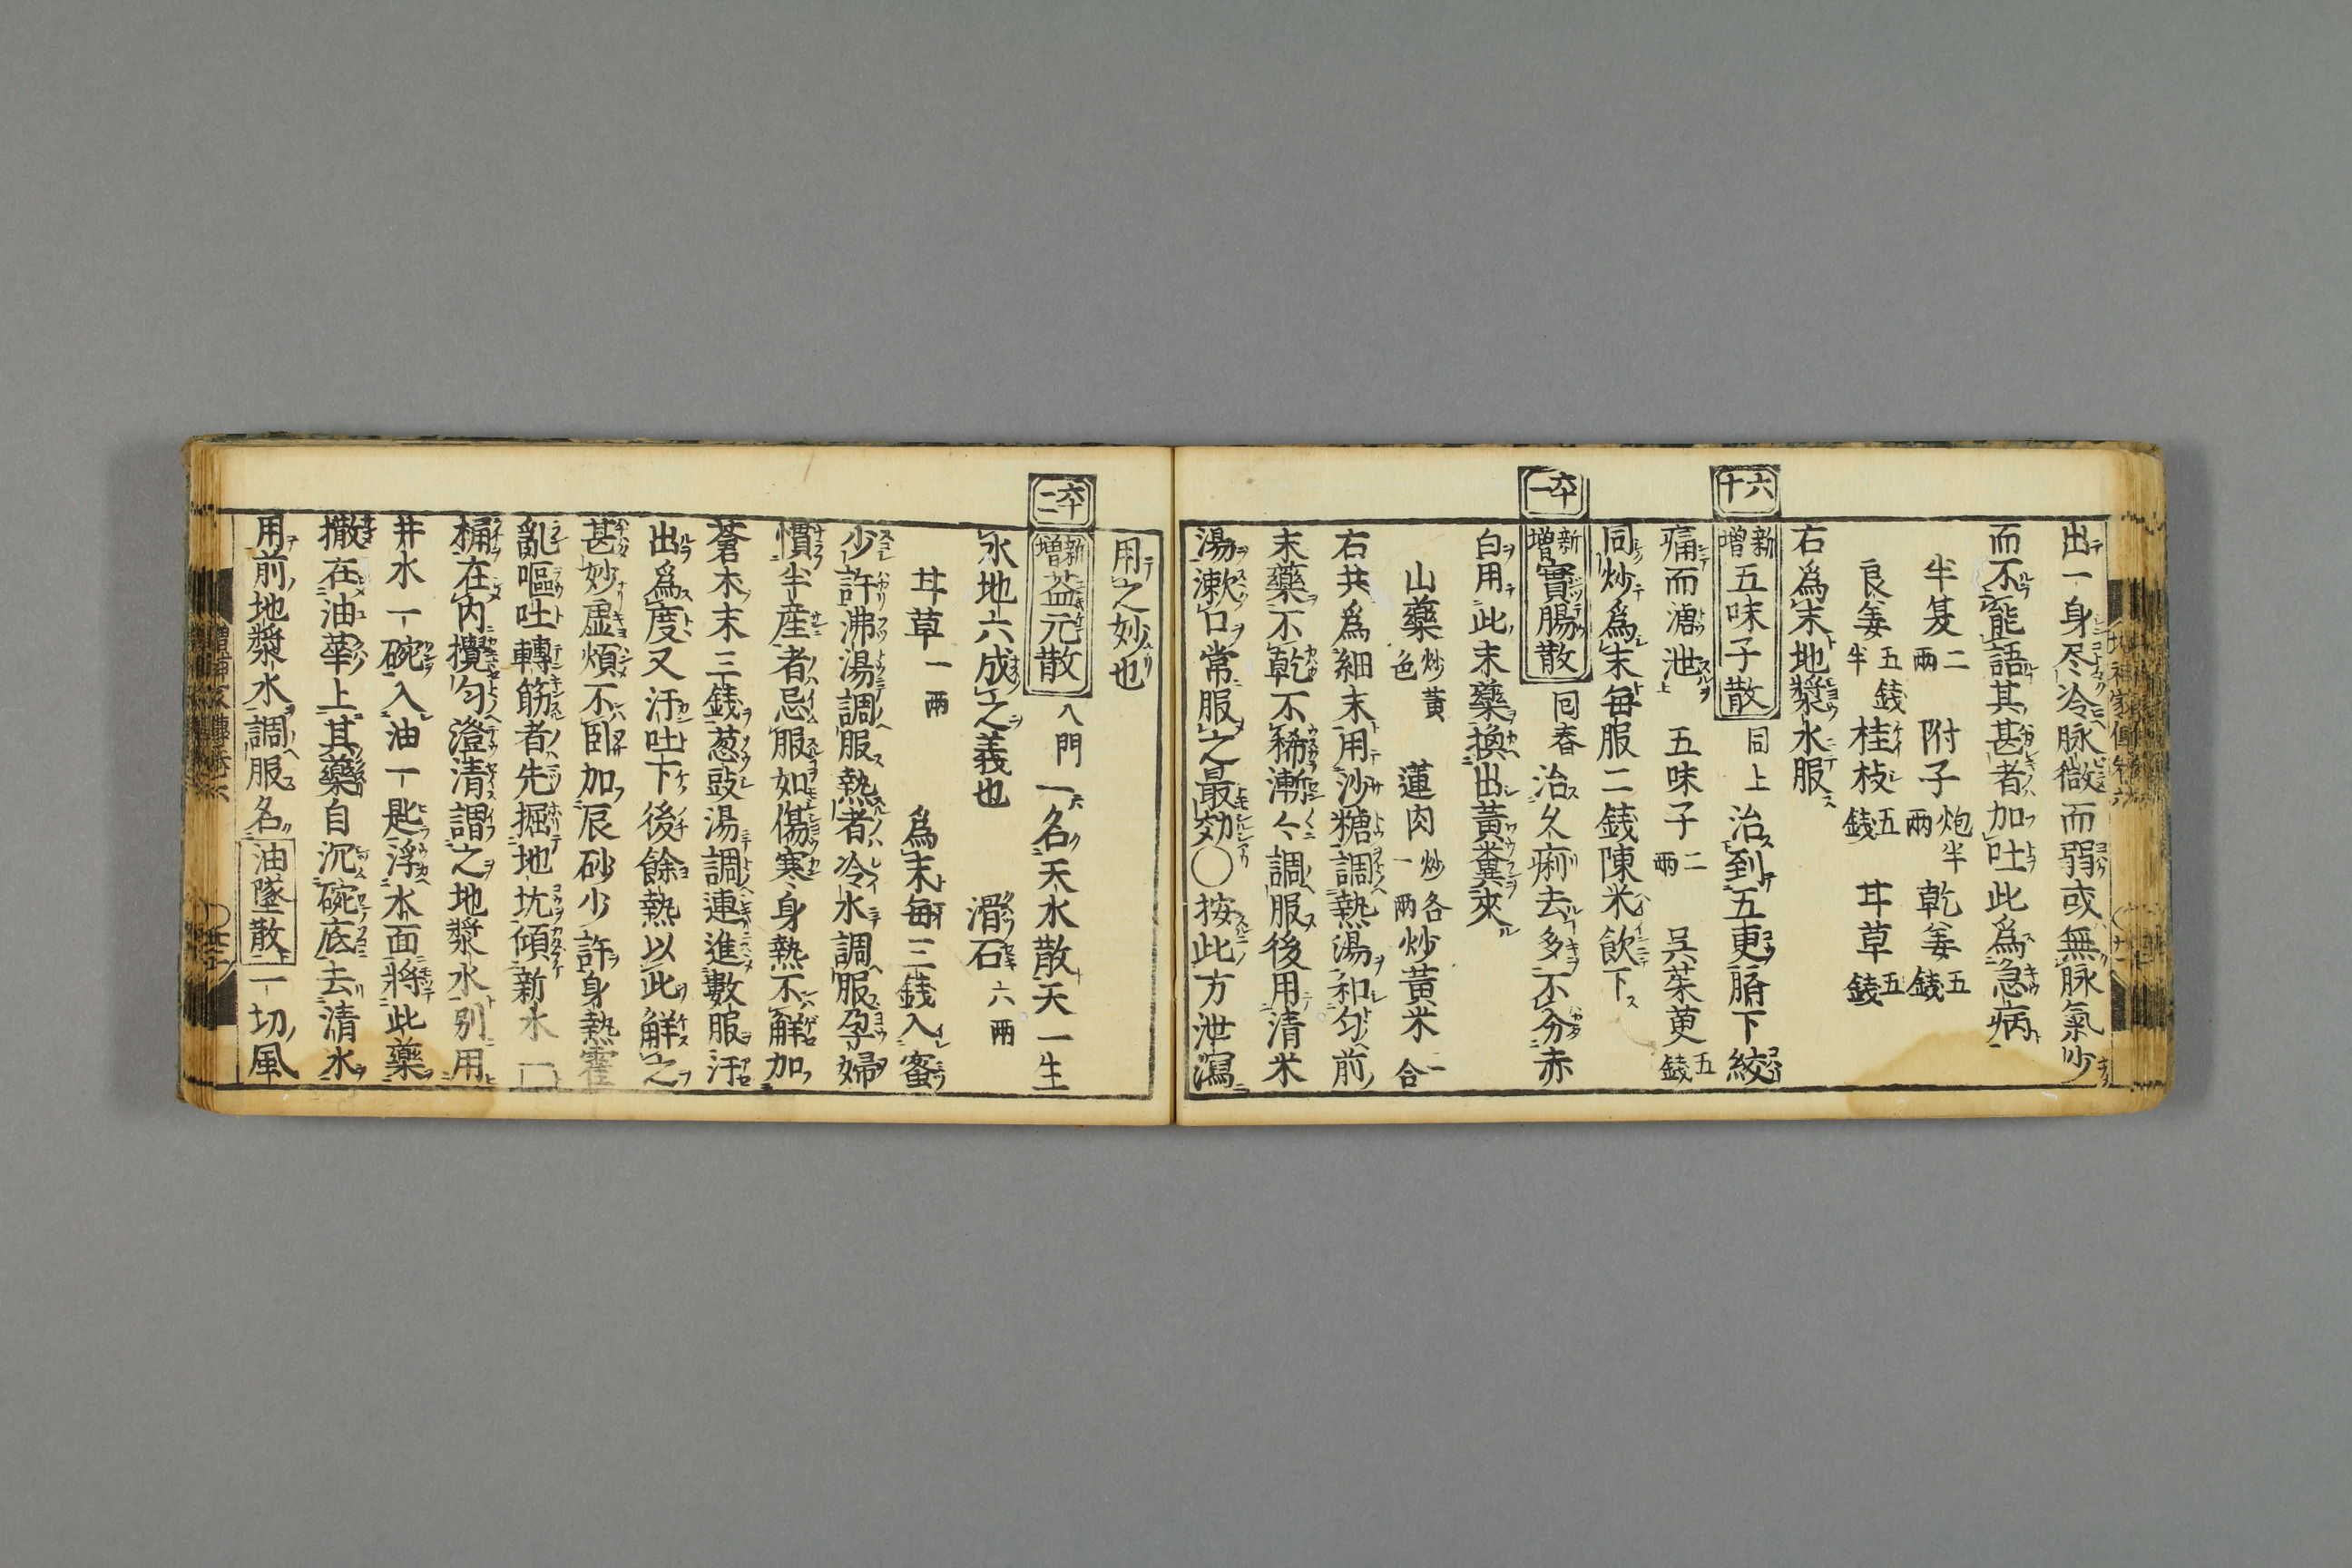 出一身尽冷脉微而弱或無脉氣少
而不能語其甚者加吐此為急病
半夏二兩 附子炮半兩 乾姜五錢
良姜五錢半 桂枝五錢 甘草五錢
右為末地漿水服
六十
新增五味子散 同上 治到五更臍下絞
痛而溏泄 五味子二兩 呉茱萸五錢
同炒為末每服二錢陳米飲下
六十一
新增實腸散 回春 治久痢去多不分赤
白用此末藥換出黃糞來
山藥炒黃色 蓮肉炒各一兩 炒黃米一合
右共為細末用沙糖調熱湯和匀前
末藥不乾不稀漸々調服後用清米
湯漱口常服之最効○按此方泄瀉
用之妙也
六十二
新增益元散 入門 一名天水散天一生
水地六成之義也 滑石六兩
甘草一兩 為末每三錢入蜜
少許沸湯調服熱者冷水調服孕婦
慣半産者忌服如傷寒身熱不解加
蒼朮末三錢葱豉湯調連進數服汗
出為度又汗吐下後餘熱以此解之
甚妙虛煩不臥加辰砂少許身熱霍
亂嘔吐轉筋者先掘地坑傾新水一
桶在內攪匀澄清謂之地漿水別用
井水一碗入油一匙浮水面將此藥
撒在油華上其藥自沉碗底去清水
用前地漿水調服名油墜散一切風